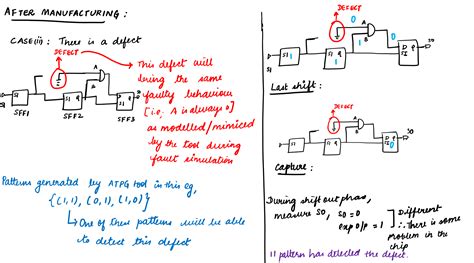 AFTER MANUFACTURING :
CASE(ii) : There is a defect
DEFECT
A
B
SI
SI Q
D
SI Q
SO
SFF1
SFF2
SFF3
This defect will
bring the same
faulty behaviour
[i.e; A is always 0]
as modelled/mimiced
by the tool during
fault simulation
Patterns generated by ATPG tool in this eg,
{(1,1), (0,1), (1,0)}
One of these patterns will be able
to detect this defect
DEFECT
0
A
0
1
B
1
1
D
SI 0
SO
SI
Last shift :
DEFECT
A
B
D
SI 0
SO
SI
Capture :
During shift out phase,
measure SO, SO = 0
exp O/P = 1
Different
∴ There is some
problem in the
chip
11 pattern has detected the defect.